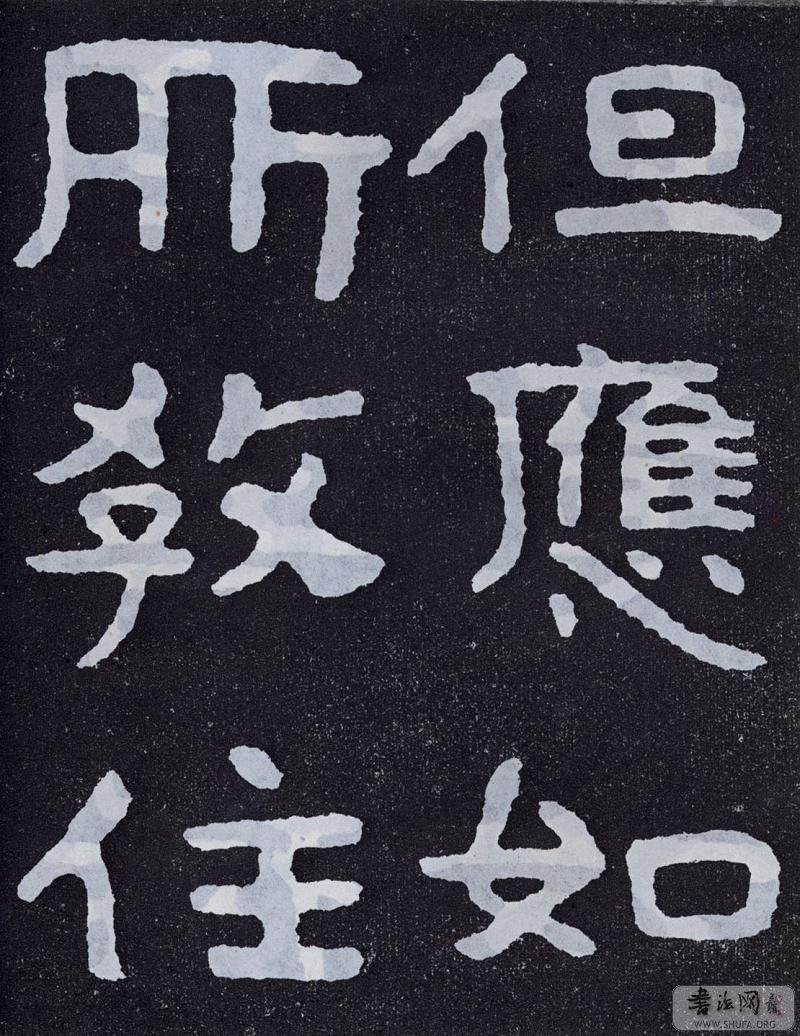 但應如
所教住
書法网
WWW.SHUFA.ORG